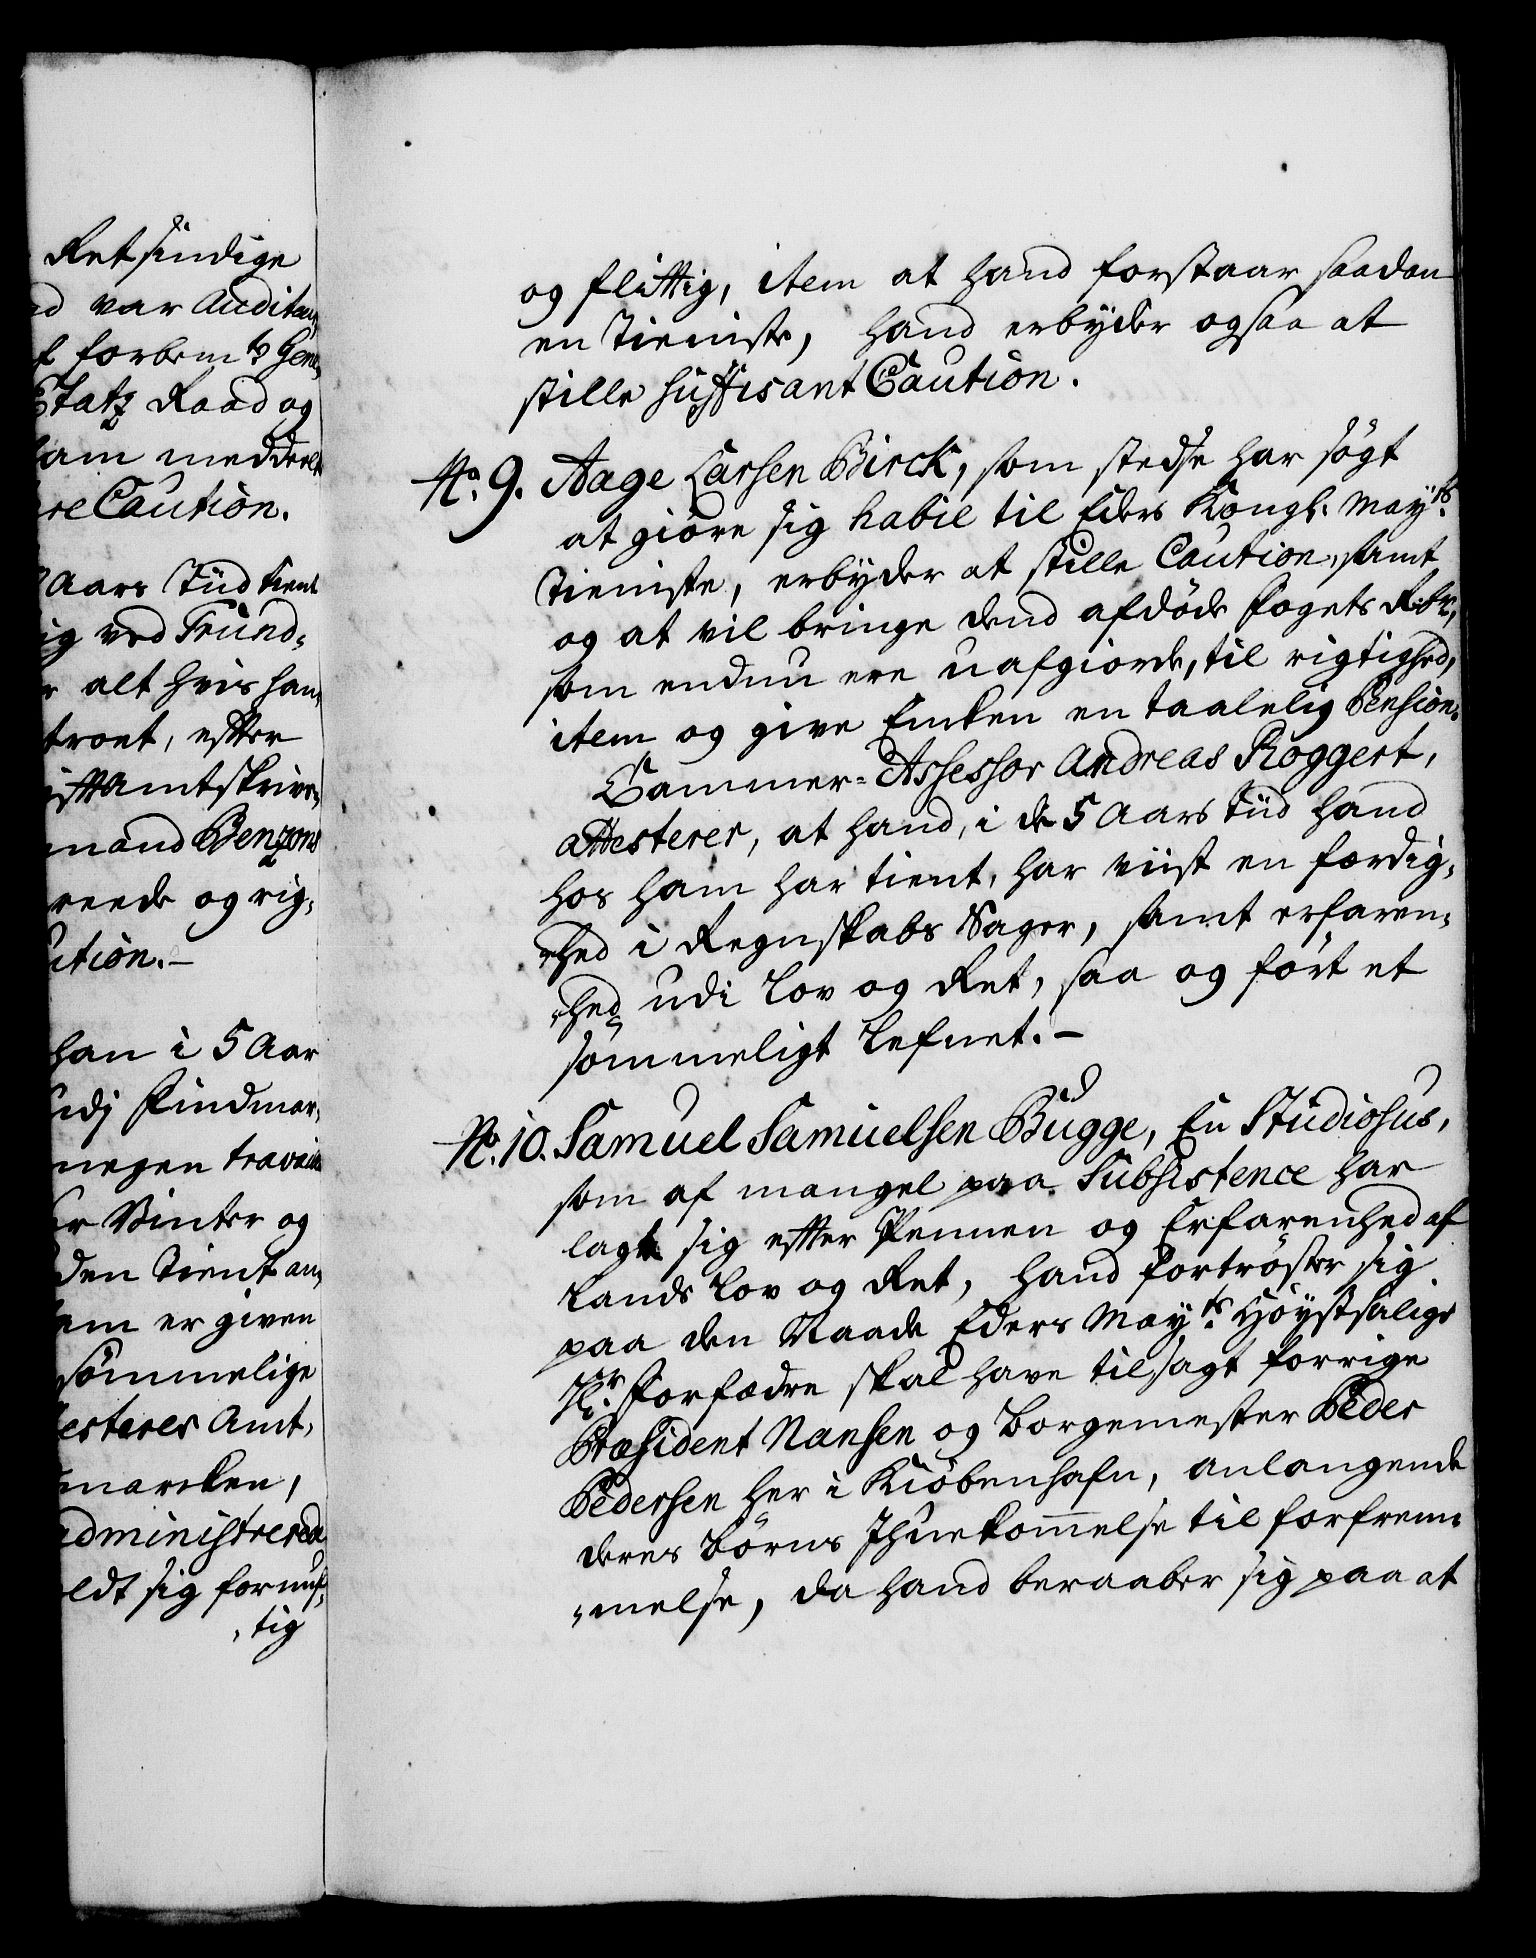 Retsindige
nd var Auditeu¬
f forbem.te Gene¬
Etatz Raad og
ham meddeelt
re Caution.
Aars Tiid tient
ig ved Trund¬
r alt hvis han¬
troet, efter
iftAmtskrive¬
mand Benzons
reede og rig¬
ution.-
han i 5 Aar
udj Findmar¬
megen travaille
er Vinter og
den Tient an¬
ham er given
sömmelige
esterer Amt¬
marcken,
administrerede
oldt sig fornuf¬
¬tig
og flittig, item at hand forstaar saadan
en Tieniste, hand erbyder ogsaa at
stille suffisant Caution.
No. 9. Aage Larsen Birck, som stedse har sögt
at giöre sig habil til Eders Kongl. May.ts
Tieniste, erbyder at stille Caution, samt
og at vil bringe dend afdöde Fogets Rbr,
som endnu ere uafgiorde, til rigtighed,
item og give Encken en taalelig Pension.
Cammer-Assessor Andreas Roggert,
attesterer, at hand, i de 5 Aars Tiid hand
hos ham har tient, har viist en færdig¬
¬hed i Regnskabs Sager, samt erfaren¬
¬hed udi Lov og Ret, saa og fört et
sömmeligt Lefnet.-
No. 10. Samuel Samuelsen Bugge, En Studiosus,
som af mangel paa Subsistence har
lagt sig efter Pennen og Erfarenhed af
Lands Lov og Ret, hand fortröster sig
paa den Naade Eders May.ts Höystsalige
Hr. Forfædre skal have tilsagt forrige
Præsident Nansen og Borgemester Peder
Pedersen her i Kiöbenhafn, anlangende
deres Börns Ihuekommelse til forfrem¬
¬melse, da hand beraaber sig paa at